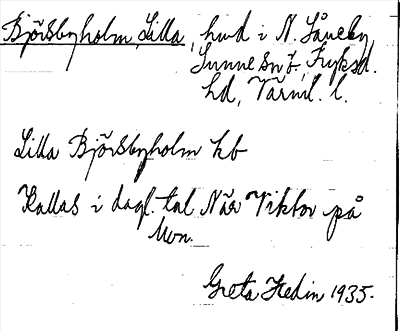 Björsbyholm, Lilla, hmd i N. Såneby
Sunne sn ö., Fryksd.
hd, Värml. l.
Lilla Björsbyholm kb
Kallas i dagl. tal När Viktor på
Mon.
Greta Hedin 1935.